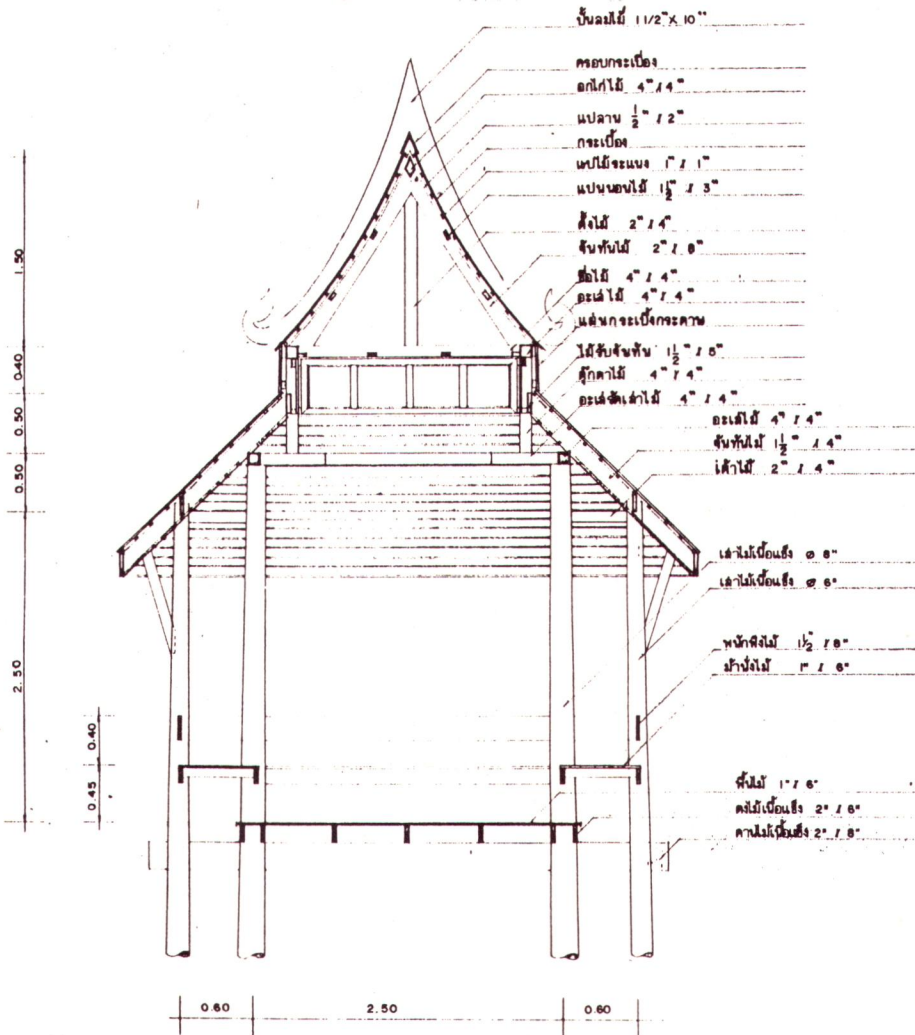 ปั้นลมไม้ 1 1/2" X 10"
ครอบกระเบื้อง
อกไก่ไม้ 4" x 4"
แปลาน 1/2" x 2"
กระเบื้อง
แปไม้ระแนง 1" x 1"
แปนอนไม้ 1 1/2" x 3"
ดั้งไม้ 2" x 4"
จันทันไม้ 2" x 8"
ขื่อไม้ 4" x 4"
อะเส่ไม้ 4" x 4"
แผ่นกระเบื้องกระดาษ
ไม้รับจันทัน 1 1/2" x 5"
ตุ๊กตาไม้ 4" x 4"
อะเส่รัดเสาไม้ 4" x 4"
อะเส่ไม้ 4" x 4"
จันทันไม้ 1 1/2" x 4"
เต้าไม้ 2" x 4"
เสาไม้เนื้อแข็ง ø 8"
เสาไม้เนื้อแข็ง ø 6"
พนักพิงไม้ 1 1/2" x 8"
ม้านั่งไม้ 1" x 6"
พื้นไม้ 1" x 6"
ตงไม้เนื้อแข็ง 2" x 6"
คานไม้เนื้อแข็ง 2" x 8"
1.50
0.40
0.50
0.50
2.50
0.40
0.45
0.60
2.50
0.60